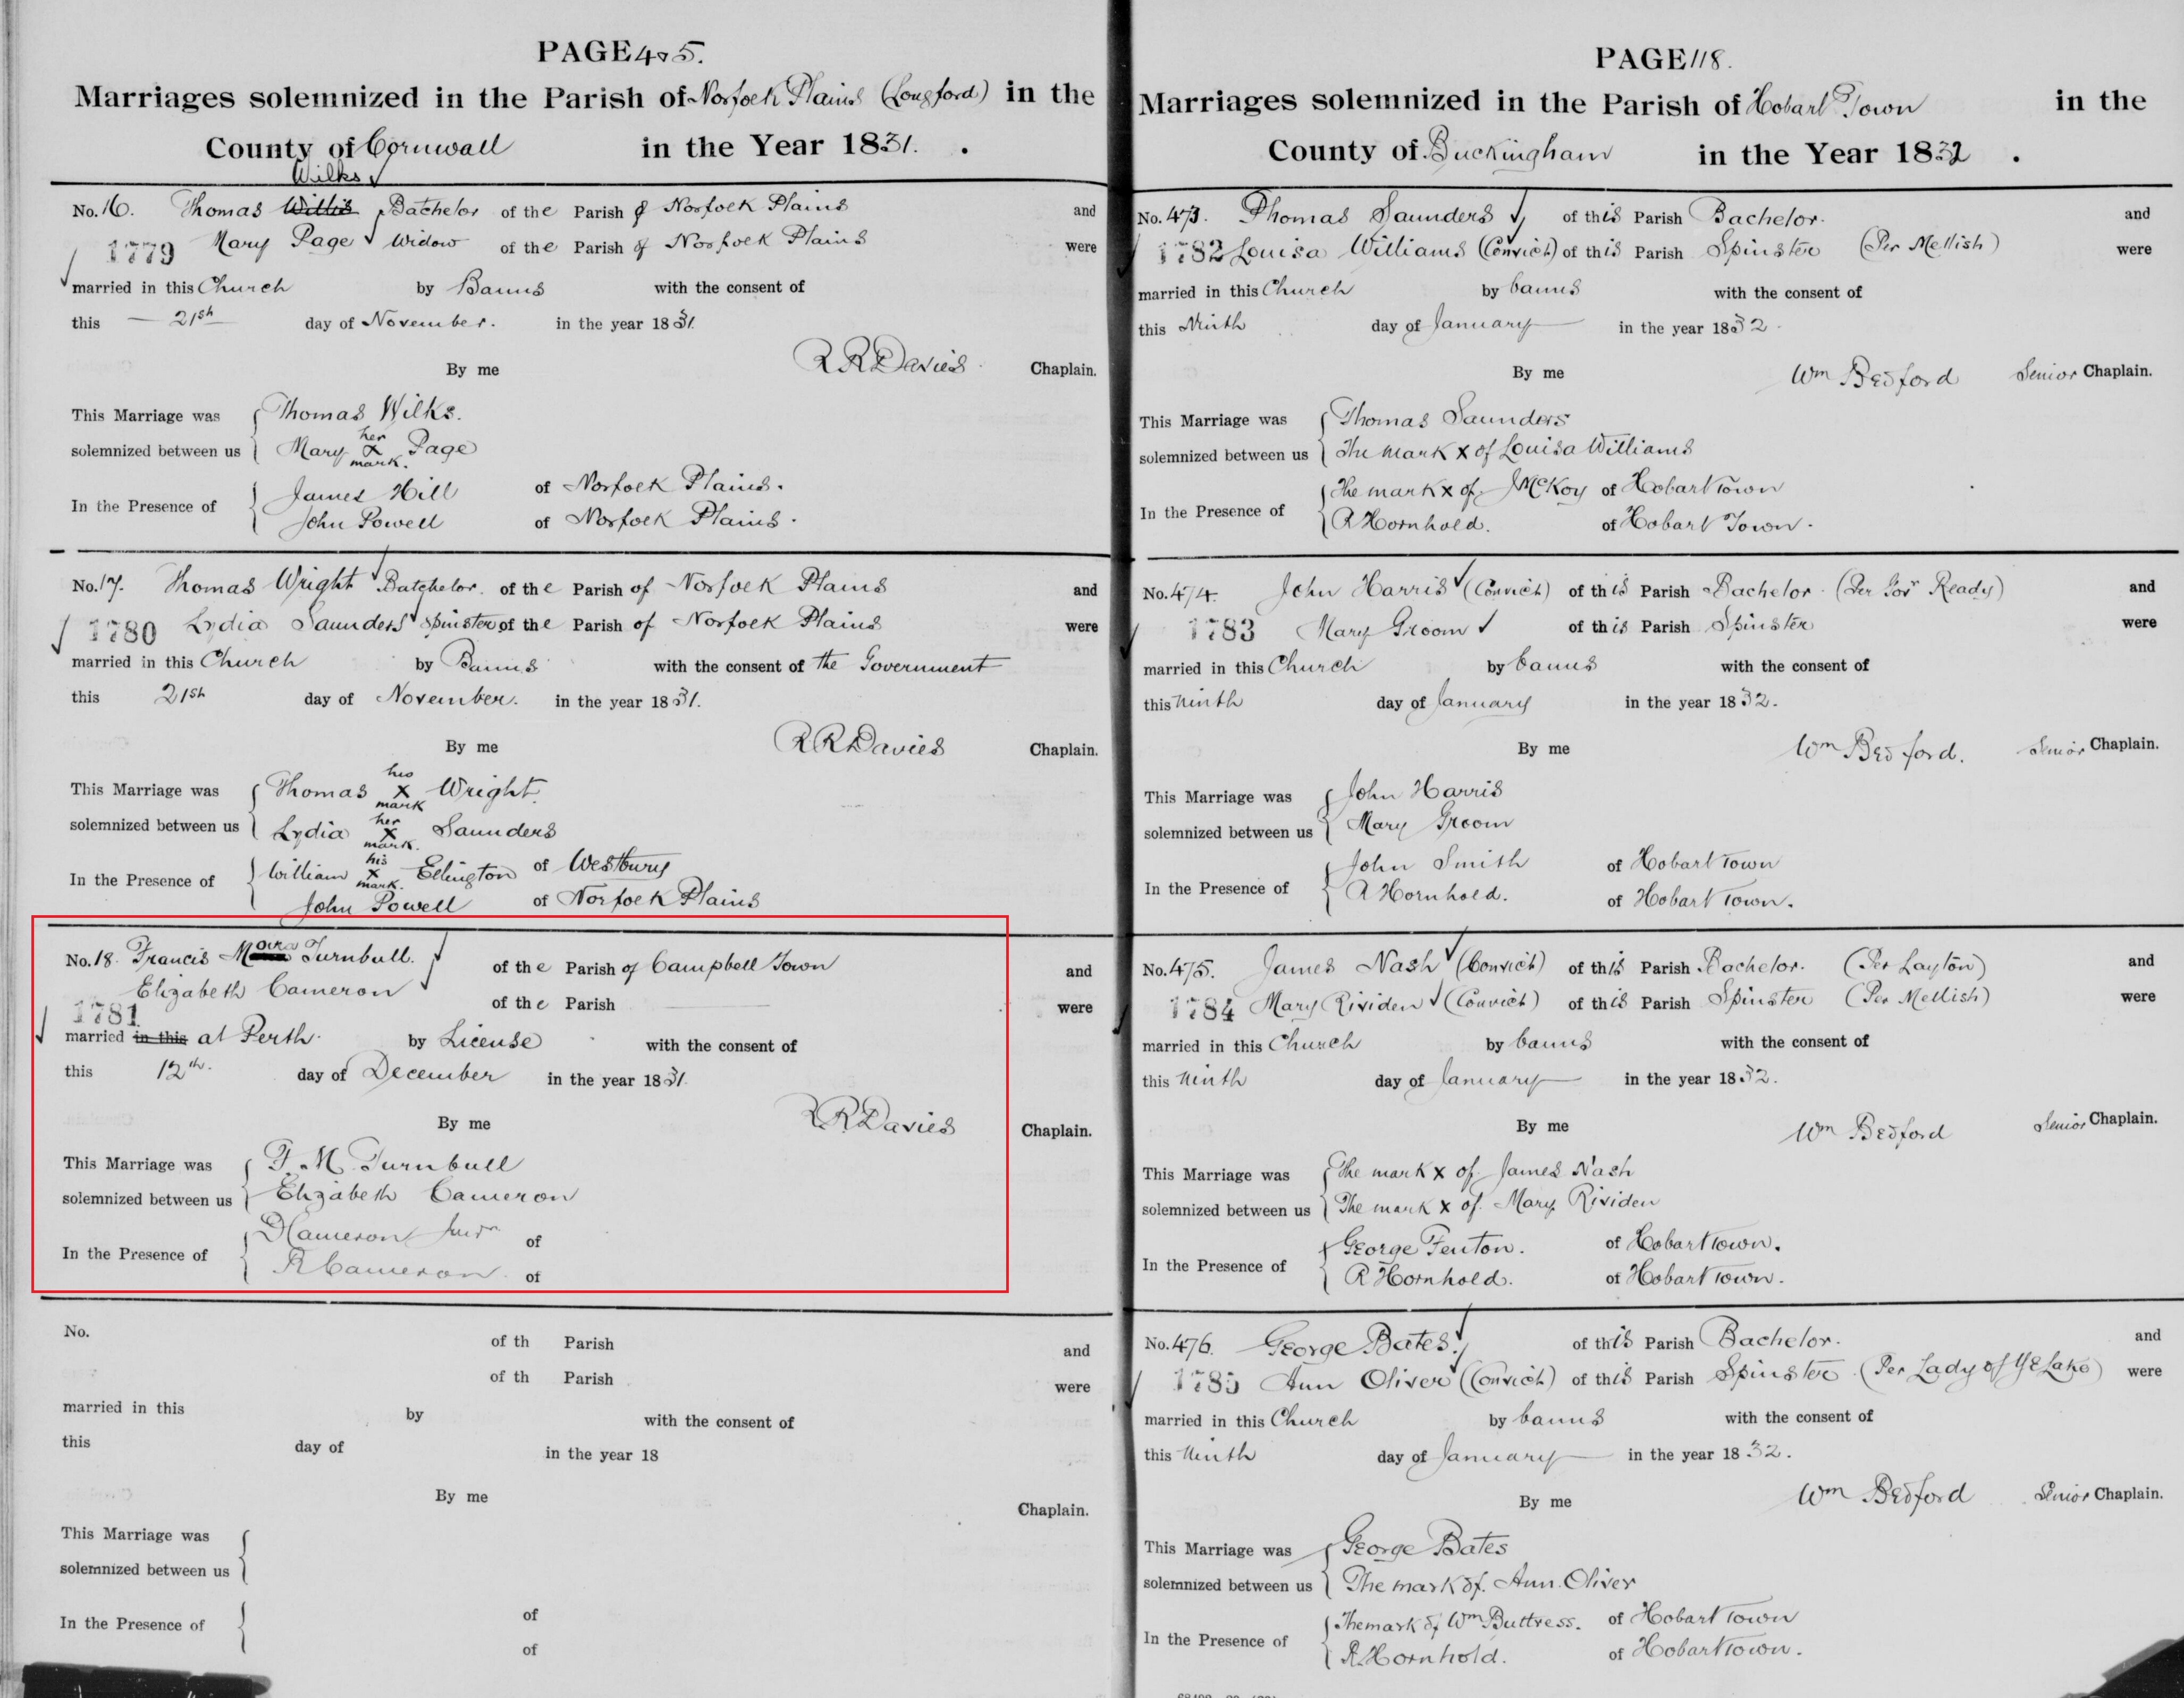 PAGE 405.
Marriages solemnized in the Parish of Norfolk Plains (Longford) in the
County of Cornwall in the Year 1831.
Wilks
No. 16. Thomas Willis Batchelor of the Parish of Norfolk Plains and
1779 Mary Page Widow of the Parish of Norfolk Plains were
married in this Church by Banns with the consent of
this 21st day of November. in the year 1831.
By me R R Davies Chaplain.
This Marriage was Thomas Wilks.
her
solemnized between us Mary x Page
mark.
In the Presence of James Hill of Norfolk Plains.
John Powell of Norfolk Plains.
No. 17. Thomas Wright Batchelor. of the Parish of Norfolk Plains and
1780 Lydia Saunders Spinster of the Parish of Norfolk Plains were
married in this Church by Banns with the consent of the Government
this 21st day of November. in the year 1831.
By me R R Davies Chaplain.
his
This Marriage was Thomas x Wright.
mark
her
solemnized between us Lydia x Saunders
mark.
his
In the Presence of William x Ellington of Westbury
mark.
John Powell of Norfolk Plains
No. 18. Francis M Turnbull. of the Parish of Campbell Town and
Elizabeth Cameron of the Parish were
1781
married in this at Perth. by License with the consent of
this 12th. day of December in the year 1831.
By me R R Davies Chaplain.
This Marriage was F. M. Turnbull
solemnized between us Elizabeth Cameron
In the Presence of D Cameron Junr of
R Cameron. of
No. of th Parish and
of th Parish were
married in this by with the consent of
this day of in the year 18
By me Chaplain.
This Marriage was
solemnized between us
In the Presence of of
of
PAGE 118.
Marriages solemnized in the Parish of Hobart Town in the
County of Buckingham in the Year 1832.
No. 473. Thomas Saunders of this Parish Bachelor. and
1782 Louisa Williams (Convict) of this Parish Spinster (Per Mellish) were
married in this Church by banns with the consent of
this Ninth day of January in the year 1832.
By me Wm Bedford Senior Chaplain.
This Marriage was Thomas Saunders
solemnized between us The mark x of Louisa Williams
In the Presence of The mark x of J McKoy of Hobart Town
R Hornhold. of Hobart Town.
No. 474. John Harris (Convict) of this Parish Bachelor. (Per Gov Ready) and
1783 Mary Groom of this Parish Spinster were
married in this Church by banns with the consent of
this ninth day of January in the year 1832.
By me Wm Bedford. Senior Chaplain.
This Marriage was John Harris
solemnized between us Mary Groom
In the Presence of John Smith of Hobart Town
R Hornhold. of Hobart Town.
No. 475. James Nash (Convict) of this Parish Bachelor. (Per Layton) and
1784 Mary Rividen (Convict) of this Parish Spinster (Per Mellish) were
married in this Church by banns with the consent of
this ninth day of January in the year 1832.
By me Wm Bedford Senior Chaplain.
This Marriage was The mark x of James Nash
solemnized between us The mark x of Mary Rividen
In the Presence of George Fenton. of Hobart Town.
R Hornhold. of Hobart Town.
No. 476. George Bates. of this Parish Bachelor. and
1785 Ann Oliver (Convict) of this Parish Spinster. (Per Lady of Ye Lake) were
married in this Church by banns with the consent of
this ninth day of January in the year 1832.
By me Wm Bedford Senior Chaplain.
This Marriage was George Bates
solemnized between us The mark of. Ann. Oliver
In the Presence of The mark of Wm Buttress. of Hobart Town
R Hornhold. of Hobart Town.